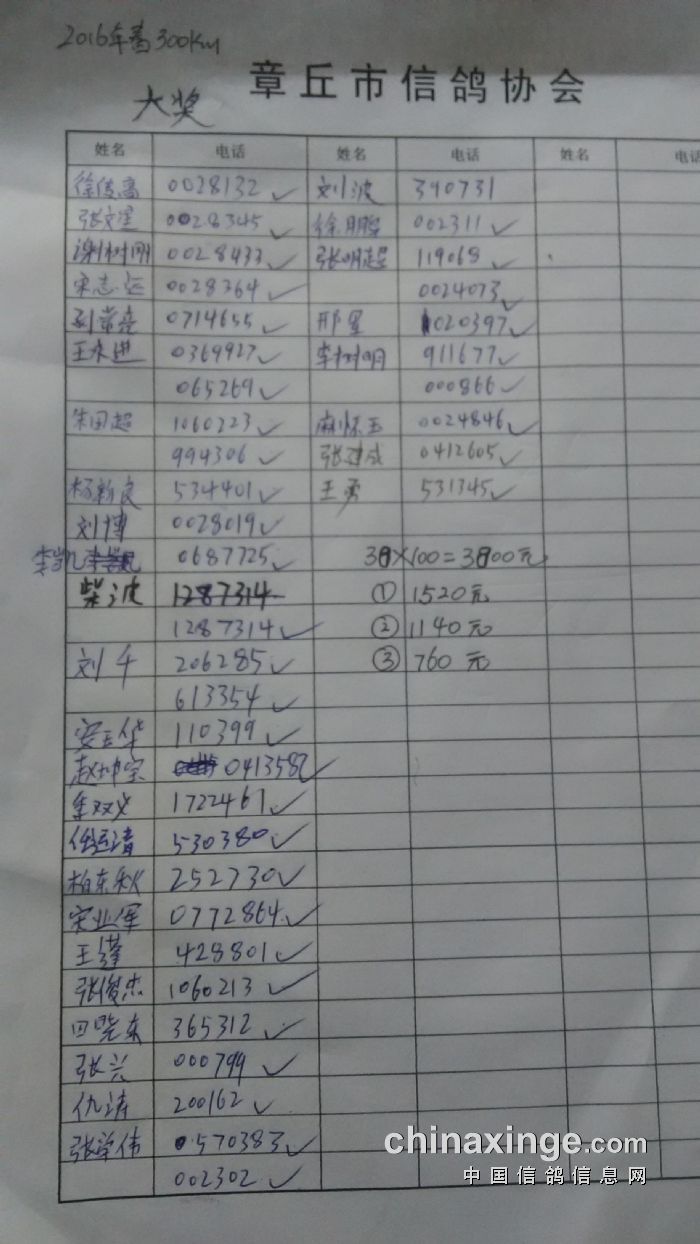 2016年春300Km
章丘市信鸽协会
大奖
姓名 电话 姓名 电话 姓名 电话
徐传高 0028132 ✓ 刘波 390731
张文星 0028345 ✓ 徐月鹏 002311 ✓
谢树刚 0028433 ✓ 张明超 119069 ✓
宋志运 0028364 ✓ 0024073 ✓
0714655 ✓ 邢星 1020397 ✓
王永进 0369927 ✓ 李树明 911677 ✓
065269 ✓ 000866 ✓
朱田超 1060223 ✓ 麻怀玉 0024846 ✓
994306 ✓ 张建成 0412605 ✓
杨新良 534401 ✓ 王勇 531345 ✓
刘博 0028019 ✓
0687725 ✓ 38×100=3800元
柴波 1287314 ① 1520元
1287314 ✓ ② 1140元
刘千 206285 ✓ ③ 760元
613354 ✓
安玉华 110399 ✓
赵坤宝 0413582 ✓
1722461 ✓
530380 ✓
柏东秋 252730 ✓
宋业军 0772864 ✓
王蓬 428801 ✓
张俊杰 1060213 ✓
田晓东 365312 ✓
张兴 000799 ✓
仇涛 200162 ✓
张学伟 0570383 ✓
002302 ✓
chinaxinge.com
中国信鸽信息网